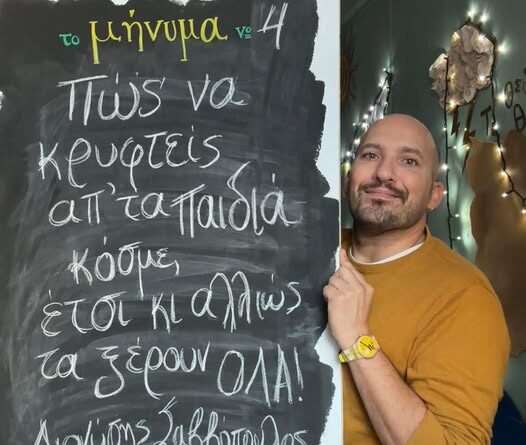 το μήνυμα νο 4
Πώς να
κρυφτείς
απ' τα παιδιά
κόσμε,
έτσι κι αλλιώς
τα ξέρουν ΟΛΑ!
Διονύσης Σαββόπουλος